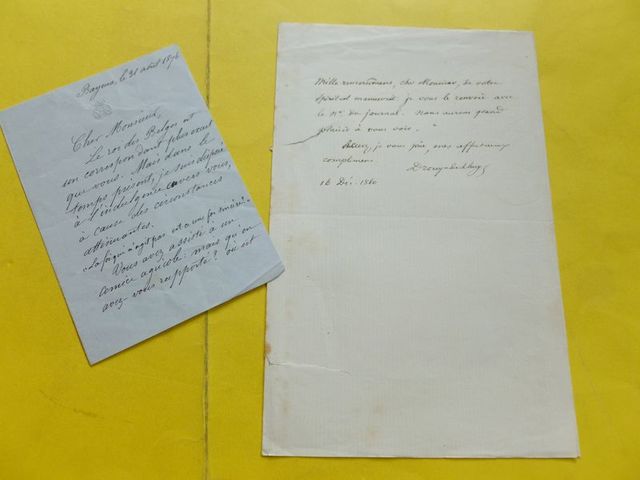 Bayeux, le 31 août 1876
Cher Monsieur,
Le roi des Belges est
un correspondant plus exact
que vous. Mais dans le
temps présent, je suis disposé
à l'indulgence envers vous,
à cause des circonstances
atténuantes.
Vous avez assisté à un
comice agricole: mais qu'en
avez-vous rapporté? où est
Mille remerciemens, cher Monsieur, de votre
spirituel manuscrit. je vous le renvoie avec
le No. du journal. Nous aurons grand
plaisir à vous voir.
je vous prie, mes affectueux
complimens.
Drouyn de Lhuys
16 Déc. 1860